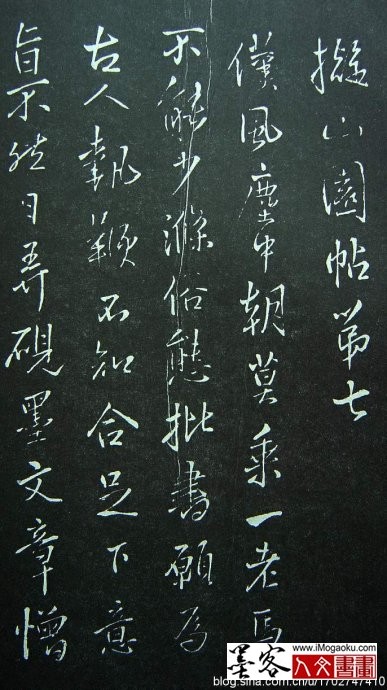 擬山園帖第七
僕風塵中朝莫乘一老馬
不能少滌俗態批書願為
古人執鞭不知合足下意
旨不然日弄硯墨文章憎
墨客
www.iMogaoku.com
人文書畫
blog.sina.com.cn/u/1702747410